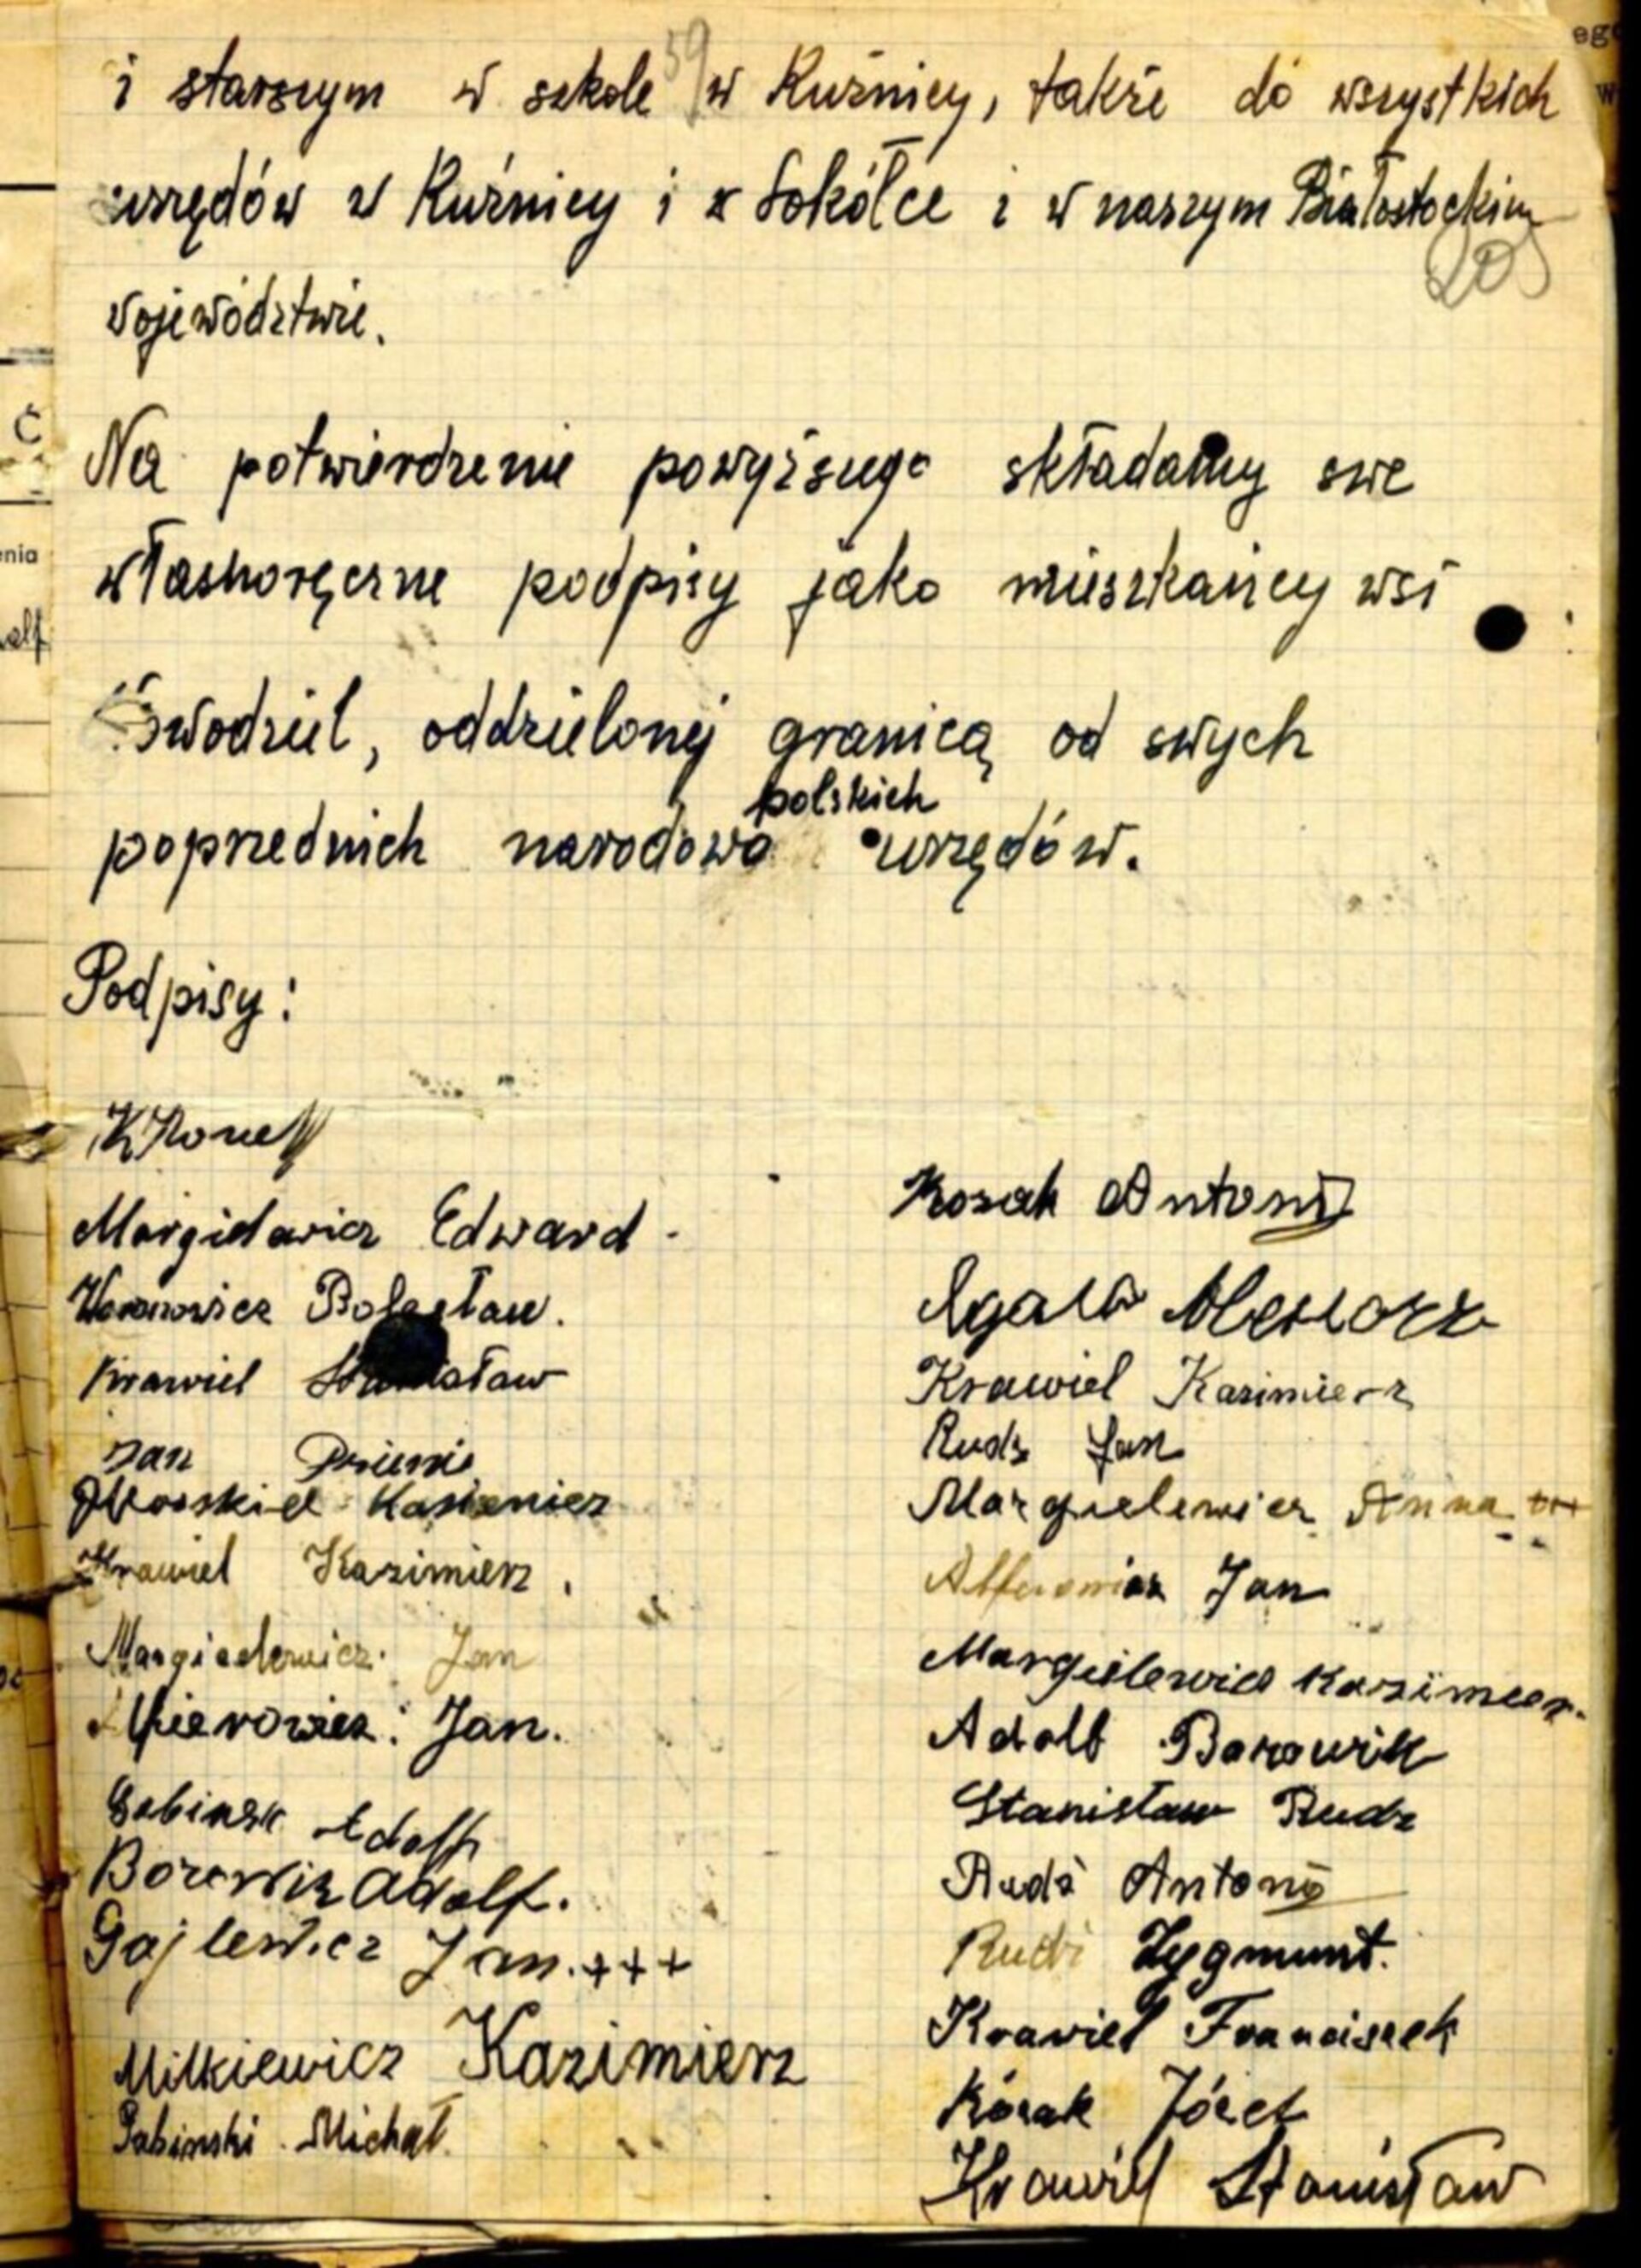 59
i starszym w szkole w Kuźnicy, także do wszystkich
urzędów w Kuźnicy i w Sokółce i w naszym Białostockim
województwie.
Na potwierdzenie powyższego składamy swe
własnoręczne podpisy jako mieszkańcy wsi
oddzielonej granicą od swych
polskich
poprzednich narodowo urzędów.
Podpisy:
Margielewicz Edward
Bolesław.
Krawiel Stanisław
Jan
Kazimierz
Krawiel Kazimierz.
Margielewicz Jan
Jan.
Adolf
Borowik Adolf.
Gajlewicz Jan. +++
Milkiewicz Kazimierz
Sabinski Michał.
Kozak Antoni
Krawiel Kazimierz
Rudz Jan
Margielewicz Anna +++
Jan
Margielewicz Kazimierz.
Adolf Borowik
Stanisław Rudz
Rudź Antoni
Rudź Zygmunt.
Krawiel Franciszek
Kózak Józef
Krawiel Stanisław